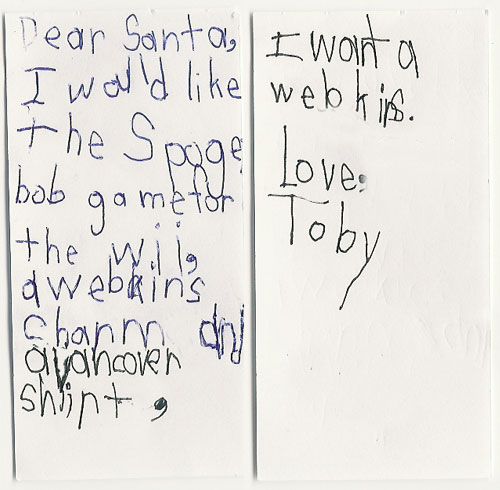 Dear Santa,
I wou'd like
the Spoge
bob game for
the wii,
a webkins
charm and
a vancover
shirt,
I want a
webkins.
Love,
Toby